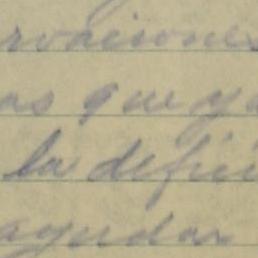 rvaciones
as que ya
la defici
ayudar